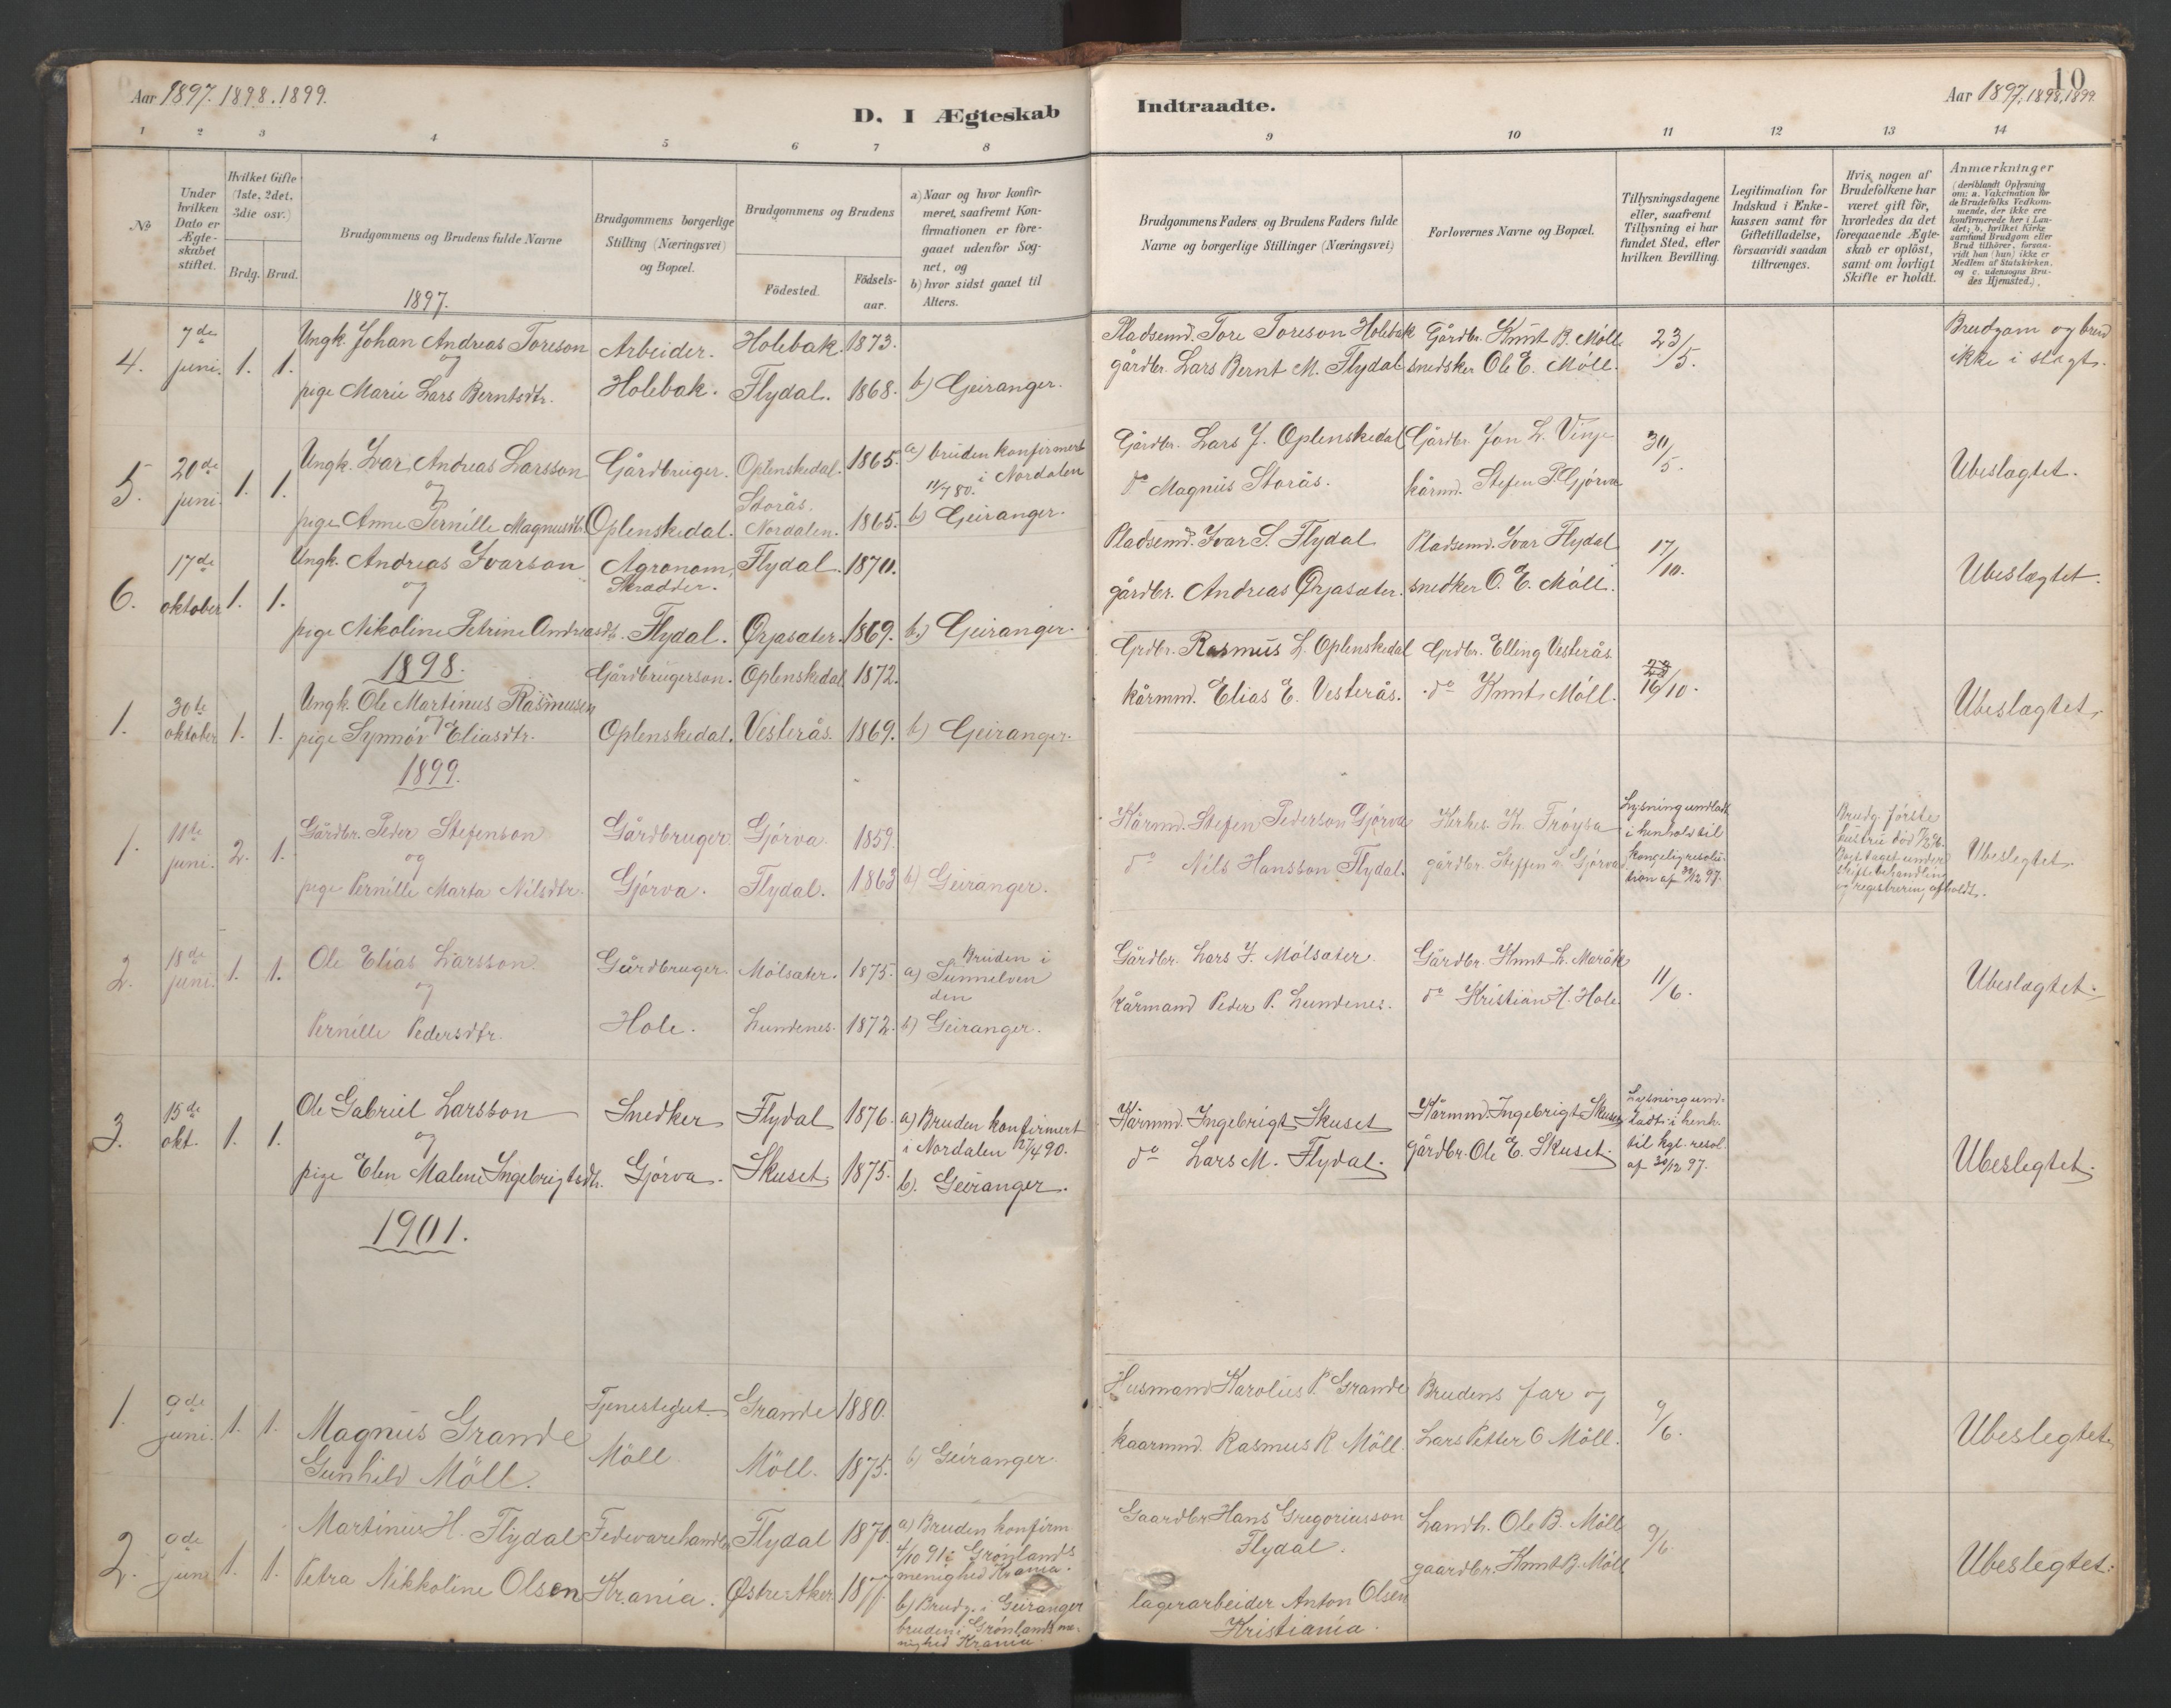 Aar 1897. 1898. 1899.
D. I Ægteskab Indtraadte.
10
Aar 1897, 1898, 1899.
1 2 3 4 5 6 7 8 9 10 11 12 13 14
No
Under hvilken Dato er Ægteskabet stiftet.
Hvilket Gifte (1ste, 2det, 3die osv.)
Brdg. Brud.
Brudgommens og Brudens fulde Navne
Brudgommens borgerlige Stilling (Næringsvei) og Bopæl.
Brudgommens og Brudens
Födested. Födselsaar.
a) Naar og hvor konfirmeret, saafremt Konfirmationen er foregaaet udenfor Sognet, og
b) hvor sidst gaaet til Alters.
Brudgommens Faders og Brudens Faders fulde Navne og borgerlige Stillinger (Næringsvei)
Forlovernes Navne og Bopæl.
Tillysningsdagene eller, saafremt Tillysning ei har fundet Sted, efter hvilken Bevilling.
Legitimation for Indskud i Enkekassen samt for Giftetilladelse, forsaavidt saadan tiltrænges.
Hvis nogen af Brudefolkene har været gift för, hvorledes da det foregaaende Ægteskab er oplöst, samt om lovligt Skifte er holdt.
Anmærkninger (deriblandt Oplysning om: a. Vakcination for de Brudefolks Vedkommende, der ikke ere konfirmerede her i Landet; b. hvilket Kirkesamfund Brudgom eller Brud tilhörer, forsaavidt han (hun) ikke er Medlem af Statskirken, og c. udensogns Brudes Hjemsted.).
1897.
4. 7de juni. 1. 1. Ungk. Johan Andreas Toreson og pige Marie Lars Berntsdtr.
Arbeider. Holebak. Holebak. 1873. Flydal. 1868. b) Geiranger.
Pladsemd. Tore Toreson Holebak
gårdbr. Lars Bernt M. Flydal
Gårdbr. Knut B. Möll
snedsker Ole E. Möll.
23/5.
Brudgom og brud ikke i slagt.
5. 20de juni. 1. 1. Ungk. Ivar Andreas Larsson og pige Anne Pernille Magnusdtr.
Gårdbruger. Oplenskedal. Oplenskedal. 1865. Storås. Nordalen. 1865.
a) bruden konfirmert 11/7 80. i Nordalen
b) Geiranger.
Gårdbr. Lars J. Oplenskedal
do Magnus Storås.
Gårdbr. Jon L. Vinje
kårmd. Stefen P. Gjörva
30/5.
Ubeslagtet.
6. 17de oktober 1. 1. Ungk. Andreas Ivarson og pige Nikoline Petrine Andreasdt.
Agronom, Skrædder. Flydal. Flydal. 1870. Ørjasæter. 1869. b) Geiranger.
Pladsemd. Ivar S. Flydal
gårdbr. Andreas Ørjasæter.
Pladsemd. Ivar Flydal
snedker O. E. Möll.
17/10.
Ubeslægtet.
1898.
1. 30te oktober 1. 1. Ungk. Ole Martinus Rasmusen og pige Synnöv Eliasdtr.
Gårdbrugerson. Oplenskedal. Oplenskedal 1872. Vesterås. 1869. b) Geiranger.
Grdbr. Rasmus L. Oplenskedal
kårmd. Elias E. Vesterås.
Grdbr. Elling Vesterås.
do Knut Möll.
16/10.
Ubeslægtet.
1899.
1. 11te juni. 2. 1. Gårdbr. Peder Stefenson og pige Pernille Marta Nilsdtr.
Gårdbruger. Gjörva. Gjörva. 1859. Flydal. 1863 b) Geiranger.
Kårmd. Stefen Pederson Gjörva
do Nils Hansson Flydal.
Kirkes. K. Tröysa
gårdbr. Steffen L. Gjörva
Lysning undladt i henhold til kongelig resolution af 30/12 97.
Brudg. förste hustru död
skiftebehandling
og registrering afholdt.
Ubeslegtet.
2. 18de juni. 1. 1. Ole Elias Larsson og Pernille Pedersdtr.
Gårdbruger. Hole. Mölsæter. 1875. Lundenes. 1872.
a) Bruden i Sunnelven
b) Geiranger.
Gårdbr. Lars J. Mölsæter.
kårmand Peder P. Lundenes.
Gårdbr. Knut L. Maråk
do Kristian H. Hole
11/6.
Ubeslægtet.
3. 15de okt. 1. 1. Ole Gabriel Larsson og pige Elen Malene Ingebrigtsdtr.
Snedker Gjörva. Flydal 1876. Skuset 1875.
a) Bruden konfirmert i Nordalen 27/4 90.
b). Geiranger.
Kårmd. Ingebrigt Skuset
do Lars M. Flydal.
Kårmd. Ingebrigt Skuset
gårdbr. Ole E. Skuset.
Lysning undladt i henh. til kgl. resol. af 30/12 97.
Ubeslegtet.
1901.
1. 9de juni. 1. 1. Magnus Grande
Gunhild Möll.
Tjenestegut. Möll Grande 1880. Möll. 1875. b) Geiranger.
Husmand Karolius P. Grande
kaarmd. Rasmus R Möll.
Brudens far og
Lars Petter O Möll.
9/6.
Ubeslegtet.
2. 9de juni 1. 1. Martinus H. Flydal
Petra Nikkoline Olsen
Fedevarehandler Krania. Flydal 1870. Østre Aker. 1877.
a) Bruden konfirm 4/10 91 i Grönlands menighed Krania.
b) Brudg. i Geiranger bruden i Grönlands menighed Krania.
Gaardbr Hans Gregoriusson Flydal.
lagerarbeider Anton Olsen Kristiania.
Landh. Ole B. Möll
gaardbr. Knut B. Möll
9/6.
Ubeslegtet.